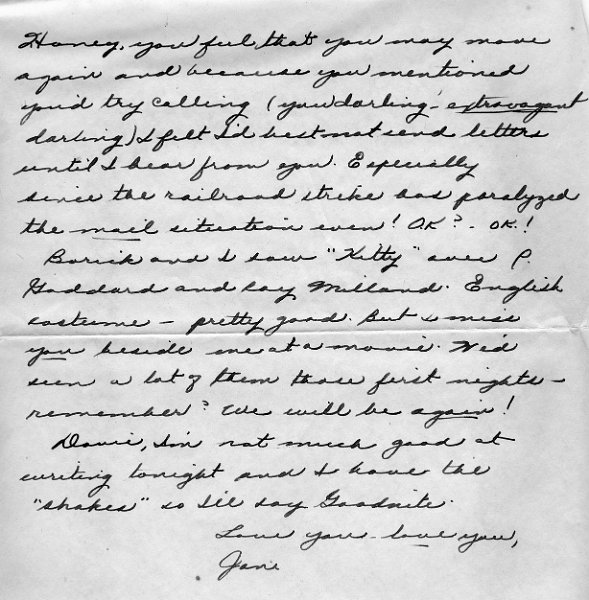 Honey, you feel that you may move
again and because you mentioned
you'd try calling (you darling - extravagant
darling) I felt I'd best not send letters
until I hear from you. Especially
since the railroad strike has paralyzed
the mail situation even! O.K? - OK.!
and I saw "Kitty" over P.
Goddard and Ray Milland. English
costume - pretty good. But I miss
you beside me at a movie. We'd
seen a lot of them those first nights -
remember? We will be again!
Davie, I'm not much good at
writing tonight and I have the
"shakes" so I'll say Goodnite.
Love you - love you,
Jane